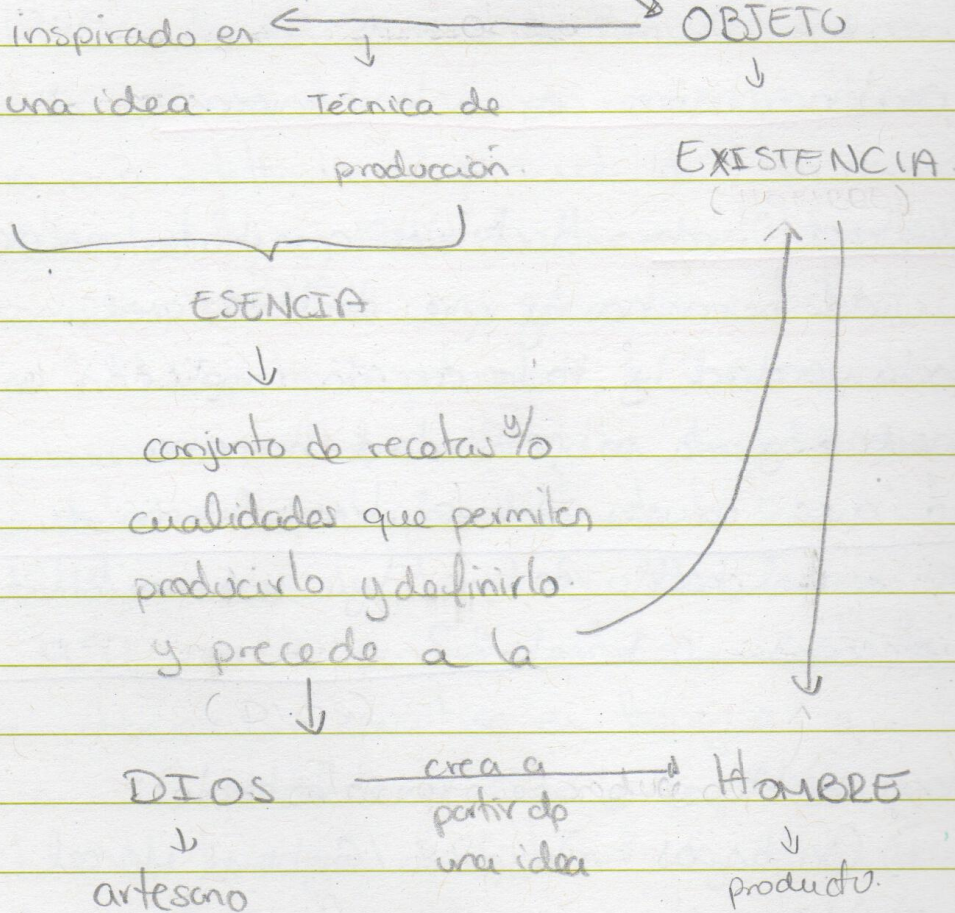 inspirado en
OBJETO
una idea.
Técnica de
producción.
EXISTENCIA
ESENCIA
conjunto de recetas y/o
cualidades que permiten
producirlo y definirlo.
y precede a la
DIOS
crea a
partir de
una idea
HOMBRE
artesano
producto.